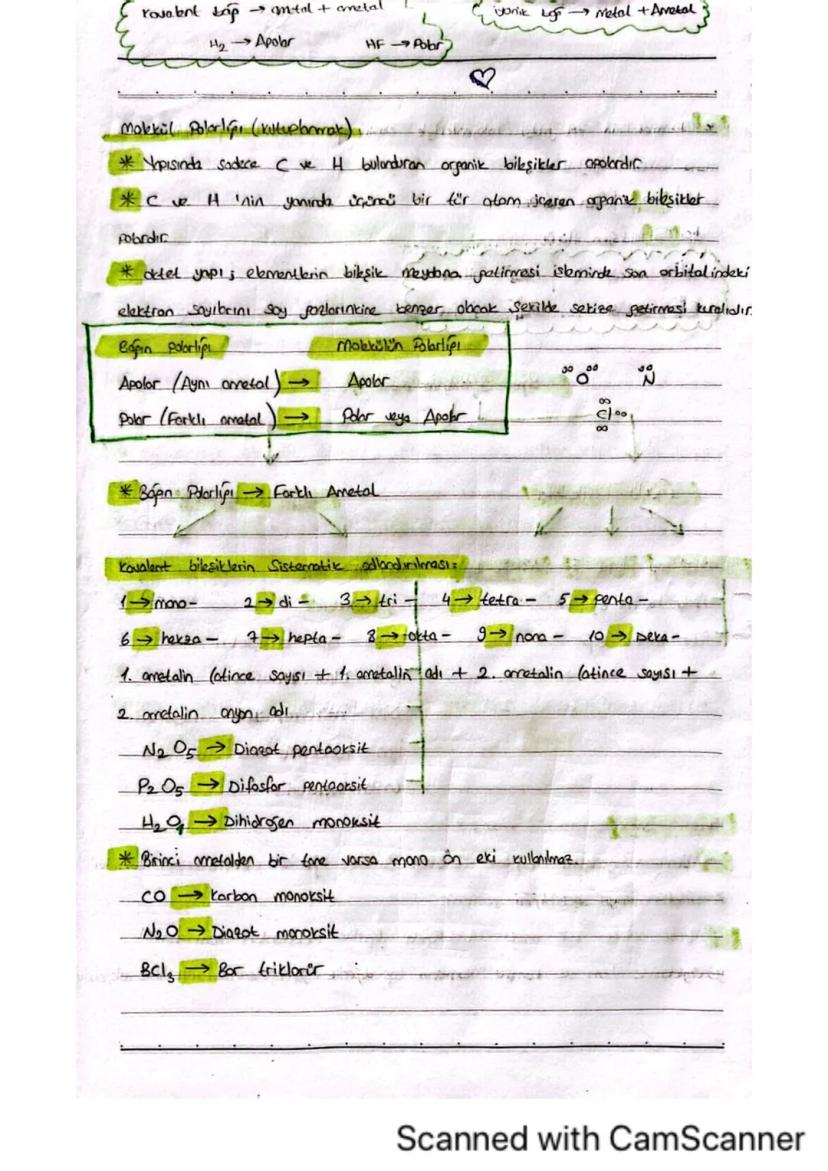 Kovalent bağ → ametal + ametal
iyonik bağ → Metal + Ametal
H2 → Apolar HF → Polar
Molekül Polarlığı (kutuplanmak)
* Yapısında sadece C ve H bulunduran organik bileşikler apolardır.
* C ve H 'nin yanında üçüncü bir tür atom içeren organik bileşikler
polardır.
* oktet yapı ; elementlerin bileşik meydana getirmesi işleminde son orbitalindeki
elektron sayılarını soy gazlarınkine benzer olacak şekilde sekize getirmesi kuralıdır.
Bağın polarlığı Molekülün Polarlığı
Apolar (Aynı ametal) → Apolar
Polar (Farklı ametal) → Polar veya Apolar
O N
Cl
* Bağın Polarlığı → Farklı Ametal
Kovalent bileşiklerin Sistematik adlandırılması:
1 → mono- 2 → di - 3 → tri - 4 → tetra - 5 → penta -
6 → hekza - 7 → hepta - 8 → okta - 9 → nona - 10 → Deka -
1. ametalin latince sayısı + 1. ametalin adı + 2. ametalin latince sayısı +
2. ametalin anyon adı
N2O5 → Diazot pentaoksit
P2O5 → Difosfor pentaoksit
H2O1 → Dihidrojen monoksit
* Birinci ametalden bir tane varsa mono ön eki kullanılmaz.
CO → Karbon monoksit
N2O → Diazot monoksit
BCl3 → Bor triklorür
Scanned with CamScanner